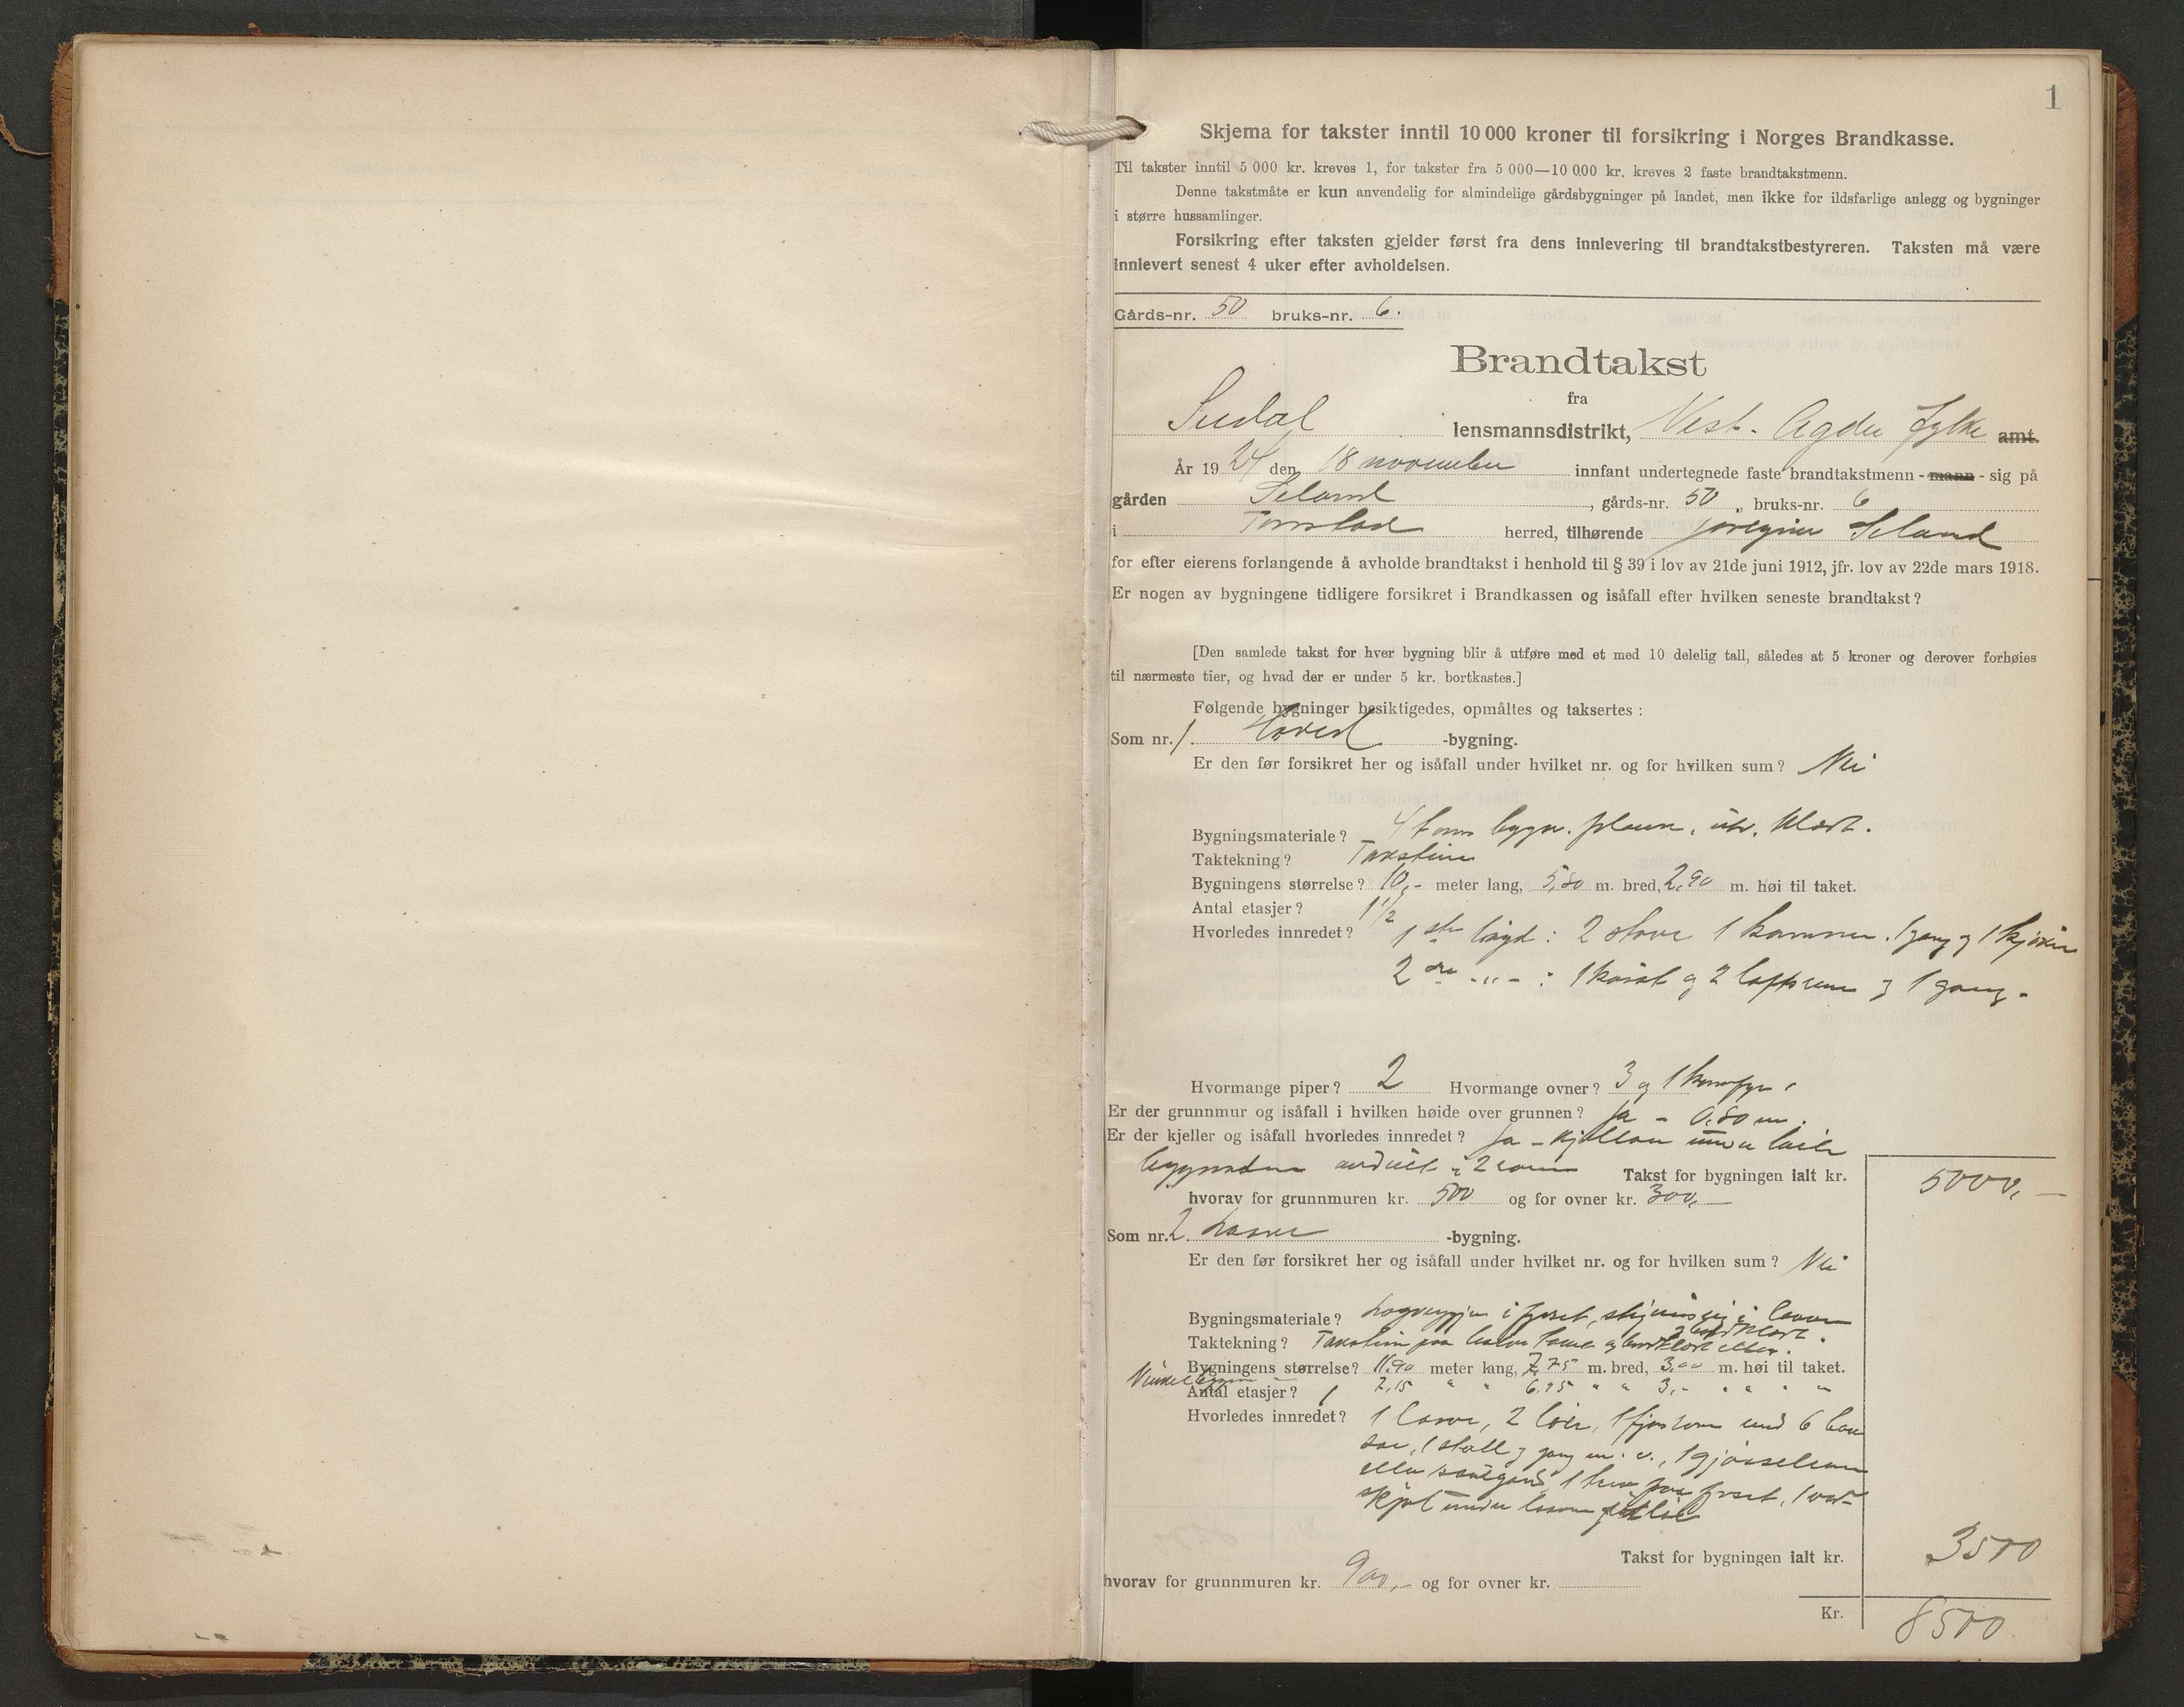 1
Skjema for takster inntil 10 000 kroner til forsikring i Norges Brandkasse.
Til takster inntil 5 000 kr. kreves 1, for takster fra 5 000—10 000 kr. kreves 2 faste brandtakstmenn.
Denne takstmåte er kun anvendelig for almindelige gårdsbygninger på landet, men ikke for ildsfarlige anlegg og bygninger
i større hussamlinger.
Forsikring efter taksten gjelder først fra dens innlevering til brandtakstbestyreren. Taksten må være
innlevert senest 4 uker efter avholdelsen.
Gårds-nr. 50 bruks-nr. 6.
Brandtakst
fra
Sirdal lensmannsdistrikt, Vest-Agder fylke amt.
År 1924 den 18 november innfant undertegnede faste brandtakstmenn - mann - sig på
gården Seland, gårds-nr. 50, bruks-nr. 6
i Tonstad herred, tilhørende Seland
for efter eierens forlangende å avholde brandtakst i henhold til § 39 i lov av 21de juni 1912, jfr. lov av 22de mars 1918.
Er nogen av bygningene tidligere forsikret i Brandkassen og isåfall efter hvilken seneste brandtakst?
[Den samlede takst for hver bygning blir å utføre med et med 10 delelig tall, således at 5 kroner og derover forhøies
til nærmeste tier, og hvad der er under 5 kr. bortkastes.]
Følgende bygninger besiktigedes, opmåltes og taksertes:
Som nr. 1. Hoved -bygning.
Er den før forsikret her og isåfall under hvilket nr. og for hvilken sum? Nei
Bygningsmateriale? 4 toms bygn. plank, utv. klædt.
Taktekning? Taksten
Bygningens størrelse? 10,- meter lang, 5,80 m. bred, 2,90 m. høi til taket.
Antal etasjer? 1 1/2
Hvorledes innredet? 1ste høgd: 2 stove 1 kammer, 1 gang og 1 kjøken
2dre -"- : 1 kvist og 2 loftsrum og 1 gang.
Hvormange piper? 2 Hvormange ovner? 3 og 1 komfyr
Er der grunnmur og isåfall i hvilken høide over grunnen? Ja - 0,80 m.
Er der kjeller og isåfall hvorledes innredet? Ja - kjelleren under heile
bygnaden avdelt i 2 rom Takst for bygningen ialt kr. 5000,—
hvorav for grunnmuren kr. 500 og for ovner kr. 300,—
Som nr. 2. Laave -bygning.
Er den før forsikret her og isåfall under hvilket nr. og for hvilken sum? Nei
Bygningsmateriale? i fjøset, i laaven
Taktekning? Taksten paa halve laaven og
Bygningens størrelse? 11,90 meter lang, 7,75 m. bred, 3,00 m. høi til taket.
Vinkelbygn
Antal etasjer? 1 7,15 " " 6,95 " " 3,- " " " "
Hvorledes innredet? 1 laave, 2 løer, 1 fjøsrom med 6 baa
sar, 1 stall og gang m. v., 1 gjødselrum
eller sauegard, 1 trev paa fjøset, 1 ved-
skjol under laaven
Takst for bygningen ialt kr. 3500
hvorav for grunnmuren kr. 900,- og for ovner kr.
Kr. 8500